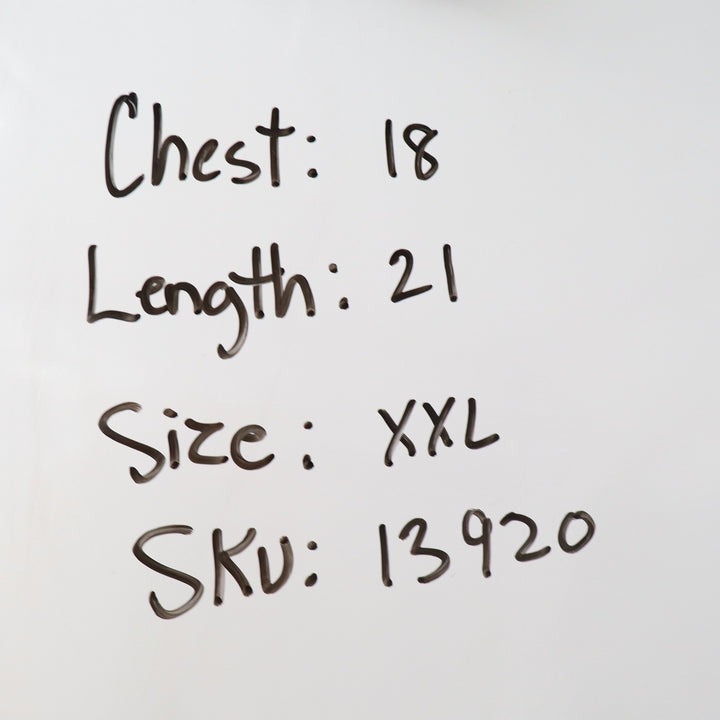 Chest: 18
Length: 21
Size: XXL
SKU: 13920